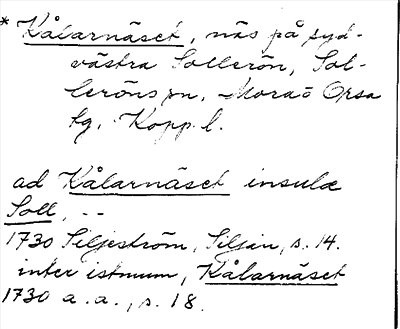 * Kålarnäset, näs på syd-
västra Sollerön, Sol-
leröns sn, Mora o Orsa
tg, Kopp. l.
ad Kålarnäset insulæ
Soll, --
1730 Siljeström, Siljan, s. 14.
inter istmum, Kålarnäset
1730 a. a., s. 18.